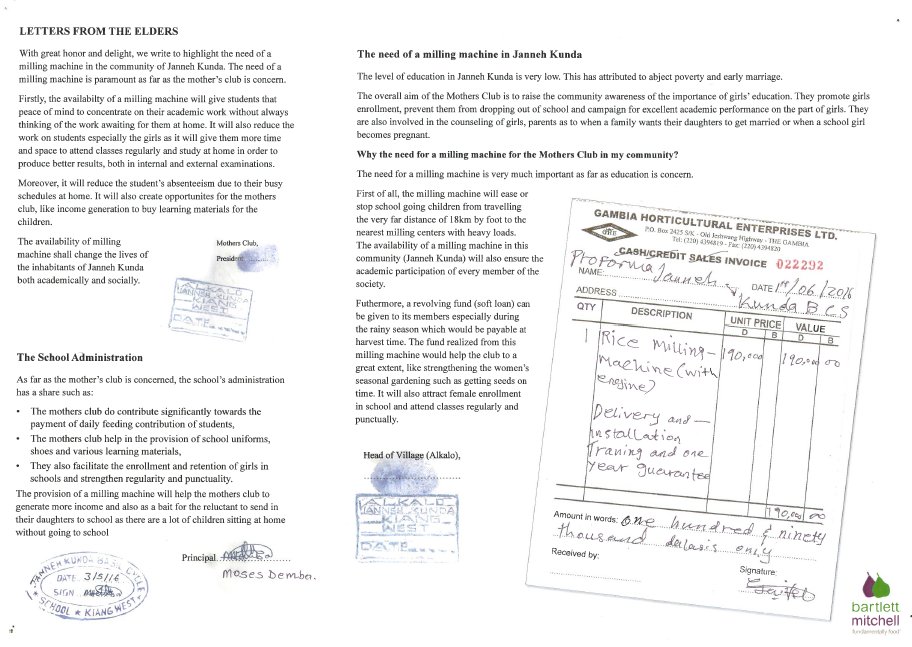 LETTERS FROM THE ELDERS
With great honor and delight, we write to highlight the need of a
milling machine in the community of Janneh Kunda. The need of a
milling machine is paramount as far as the mother's club is concern.
Firstly, the availabilty of a milling machine will give students that
peace of mind to concentrate on their academic work without always
thinking of the work awaiting for them at home. It will also reduce the
work on students especially the girls as it will give them more time
and space to attend classes regularly and study at home in order to
produce better results, both in internal and external examinations.
Moreover, it will reduce the student's absenteeism due to their busy
schedules at home. It will also create opportunites for the mothers
club, like income generation to buy learning materials for the
children.
The availability of milling
machine shall change the lives of
the inhabitants of Janneh Kunda
both academically and socially.
Mothers Club,
President
ALKALO
JANNEH KUNDA
KIANG
WEST
DATE
The School Administration
As far as the mother's club is concerned, the school's administration
has a share such as:
• The mothers club do contribute significantly towards the
payment of daily feeding contribution of students,
• The mothers club help in the provision of school uniforms,
shoes and various learning materials,
• They also facilitate the enrollment and retention of girls in
schools and strengthen regularity and punctuality.
The provision of a milling machine will help the mothers club to
generate more income and also as a bait for the reluctant to send in
their daughters to school as there are a lot of children sitting at home
without going to school
JANNEH KUNDA BASIC CYCLE
DATE 3/5/16
SIGN
SCHOOL ★ KIANG WEST
Principal
Moses Demba.
The need of a milling machine in Janneh Kunda
The level of education in Janneh Kunda is very low. This has attributed to abject poverty and early marriage.
The overall aim of the Mothers Club is to raise the community awareness of the importance of girls' education. They promote girls
enrollment, prevent them from dropping out of school and campaign for excellent academic performance on the part of girls. They
are also involved in the counseling of girls, parents as to when a family wants their daughters to get married or when a school girl
becomes pregnant.
Why the need for a milling machine for the Mothers Club in my community?
The need for a milling machine is very much important as far as education is concern.
First of all, the milling machine will ease or
stop school going children from travelling
the very far distance of 18km by foot to the
nearest milling centers with heavy loads.
The availability of a milling machine in this
community (Janneh Kunda) will also ensure the
academic participation of every member of the
society.
Futhermore, a revolving fund (soft loan) can
be given to its members especially during
the rainy season which would be payable at
harvest time. The fund realized from this
milling machine would help the club to a
great extent, like strengthening the women's
seasonal gardening such as getting seeds on
time. It will also attract female enrollment
in school and attend classes regularly and
punctually.
Head of Village (Alkalo),
ALKALO
JANNEH KUNDA
KIANG
WEST
DATE
GAMBIA HORTICULTURAL ENTERPRISES LTD.
P.O. Box 2425 S/K - Old Jeshwang Highway - THE GAMBIA
Tel: (220) 4394819 - Fax: (220) 4394820
GHE
CASH/CREDIT SALES INVOICE 022292
Proforma
NAME: Janneh DATE 1st/06/2016
ADDRESS Kunda B C S
QTY DESCRIPTION UNIT PRICE VALUE
D B D B
1 Rice Milling- 190,000 190,000 00
Machine (with
engine)
Delivery and -
installation
Traning and one
year guarantee
190,000 00
Amount in words: One hundred & ninety
thousand dalasis only
Received by:
Signature:
bartlett
mitchell
fundamentally food